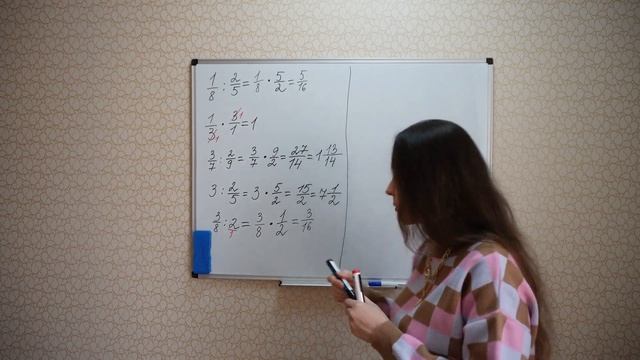 1/8 : 2/5 = 1/8 · 5/2 = 5/16
1/3 1 · 3 1/1 = 1
3/7 : 2/9 = 3/7 · 9/2 = 27/14 = 1 13/14
3 : 2/5 = 3 · 5/2 = 15/2 = 7 1/2
3/8 : 2/1 = 3/8 · 1/2 = 3/16